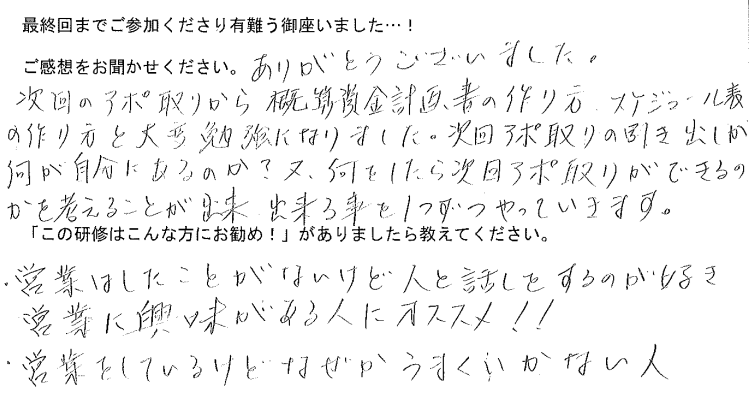 最終回までご参加くださり有難う御座いました…！
ご感想をお聞かせください。ありがとうございました。
次回のアポ取りから概算資金計画書の作り方、スケジュール表
の作り方と大変勉強になりました。次回アポ取りの引き出しが
何が自分にあるのか？又、何をしたら次回アポ取りができるの
かを考えることが出来、出来る事を1つずつやっていきます。
「この研修はこんな方にお勧め！」がありましたら教えてください。
・営業はしたことがないけど人と話しをするのが好き
営業に興味がある人にオススメ！！
・営業をしているけどなぜかうまくいかない人